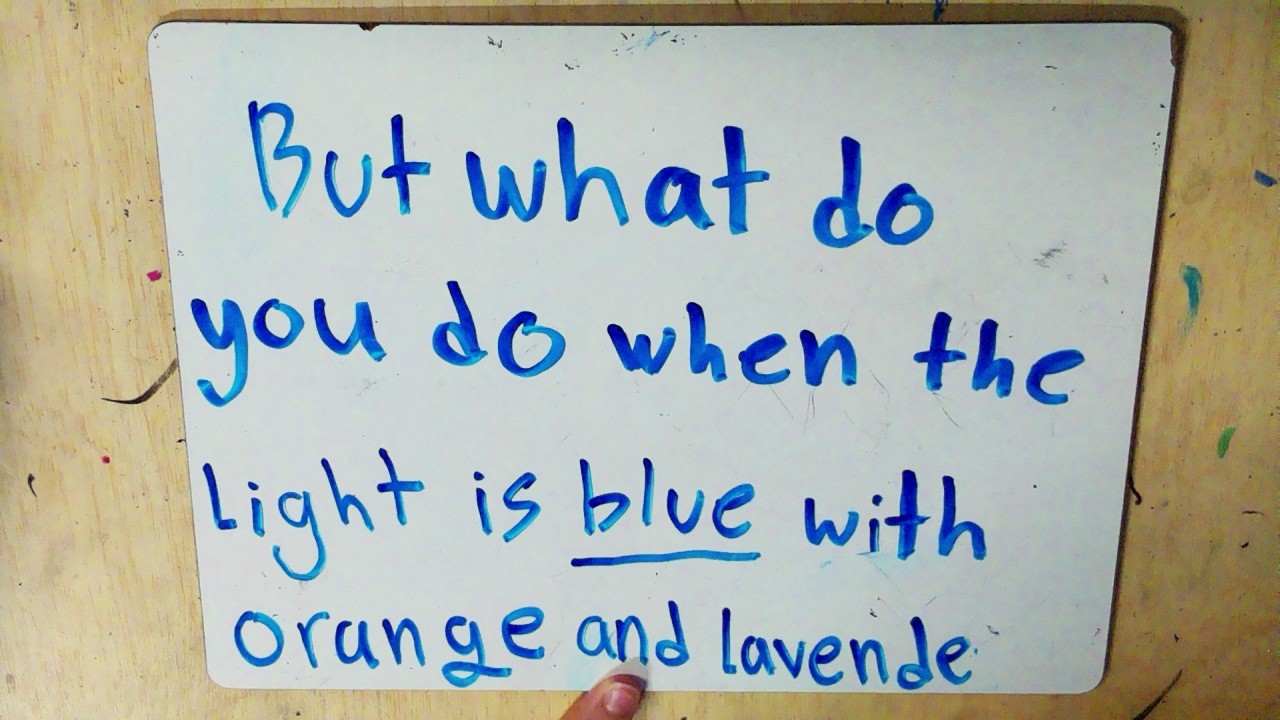 But what do
you do when the
Light is blue with
orange and lavende